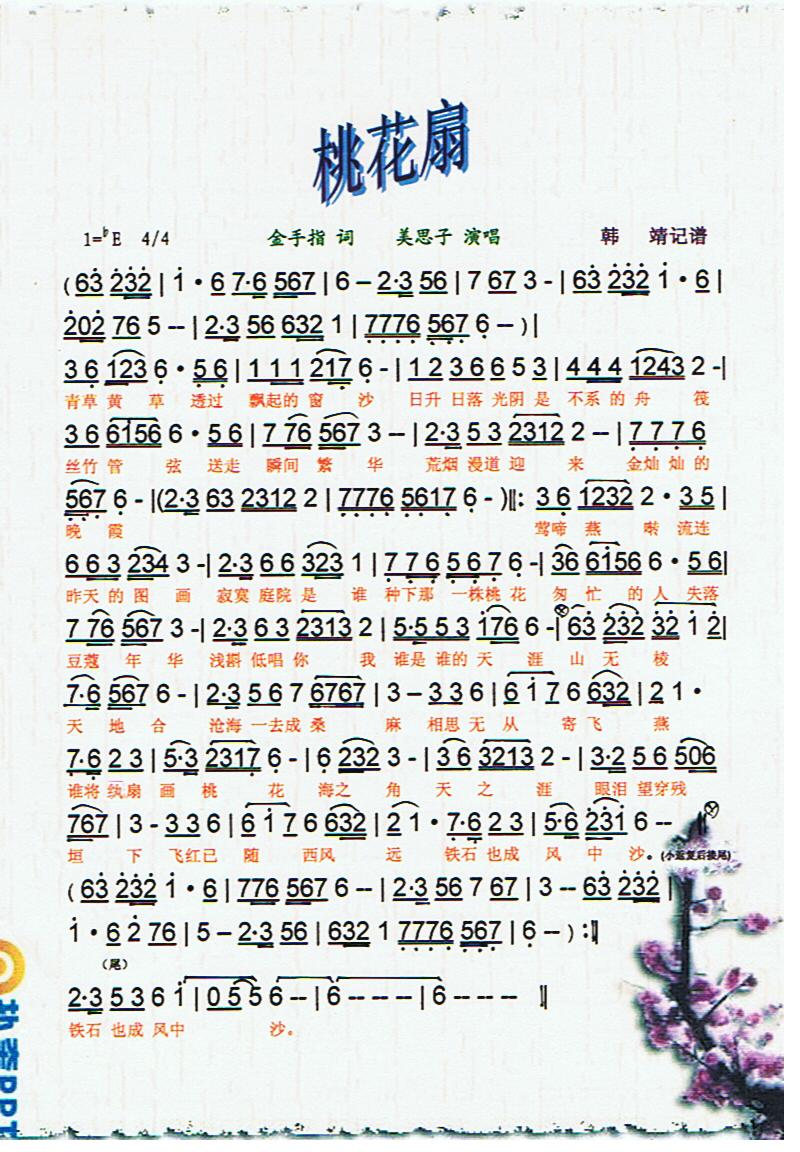 桃花扇
1=♭E 4/4 金手指 词 美思子 演唱 韩 靖记谱
(63 232 | 1·6 7·6 567 | 6 – 2·3 56 | 7 67 3 - | 63 232 1·6 |
202 76 5 -- | 2·3 56 632 1 | 7776 567 6 -- )|
3 6 123 6·5 6 | 1 1 1 217 6 - | 1 2 3 6 6 5 3 | 4 4 4 1243 2 -|
青草 黄 草 透过 飘起的 窗 沙 日升 日落 光阴 是 不系 的 舟 筏
3 6 6156 6·5 6 | 7 76 567 3 -- | 2·3 5 3 2312 2 -- | 7 7 7 6
丝竹 管 弦 送走 瞬间 繁 华 荒烟 漫道 迎 来 金灿 灿的
567 6 - |(2·3 63 2312 2 | 7776 5617 6 - )‖: 3 6 1232 2·3 5 |
晚 霞 莺啼 燕 啭 流连
6 6 3 234 3 -| 2·3 6 6 323 1 | 7 7 6 5 6 7 6 - | 36 6156 6·5 6|
昨天 的 图 画 寂寞 庭院 是 谁 种下那 一株桃 花 匆 忙 的 人 失落
7 76 567 3 -| 2·3 6 3 2313 2 | 5·5 5 3 176 6 -| 63 232 32 1 2|
豆蔻 年 华 浅斟 低唱 你 我 谁是 谁的 天 涯 山 无 棱
7·6 567 6 - | 2·3 5 6 7 6767 | 3 – 3 3 6 | 6 1 7 6 632 | 2 1 ·
天 地 合 沧海 一去成 桑 麻 相思 无 从 寄 飞 燕
7·6 2 3 | 5·3 2317 6 - | 6 232 3 - | 36 3213 2 - | 3·2 5 6 506
谁将 纨扇 画 桃 花 海之 角 天 之 涯 眼泪 望穿 残
767 | 3 - 3 3 6 | 6 1 7 6 632 | 2 1 · 7·6 2 3 | 5·6 231 6 --
垣 下 飞红已 随 西风 远 铁石 也成 风 中 沙。(小返复后接尾)
(63 232 1·6 | 776 567 6 -- | 2·3 56 7 67 | 3 -- 63 232 |
1·6 2 76 | 5 – 2·3 56 | 632 1 7776 567 | 6 -- ) :‖
(尾)
2·3 5 3 6 1 | 0 5 5 6 -- | 6 -- -- | 6 -- -- ‖
铁石 也成 风中 沙。